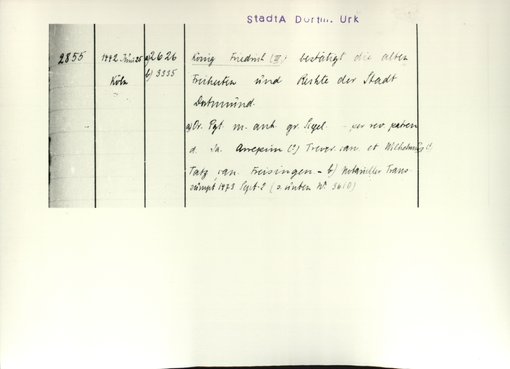 StadtA Dortm. Urk
2855 1442 Juni 25 a) 2626 König Friedrich (III) bestätigt die alten
Köln b) 3335 Freiheiten und Rechte der Stadt
Dortmund.
a) Or. Pgt. m. anh. gr. Sigel - per rev. patrem
d. Ja. (?) Trever. can. et Wilhelmus
Tatz, can. Freisingen - b) Notarieller Trans-
sumpt 1473 Sept. 2 (s. unten Nº 3610)